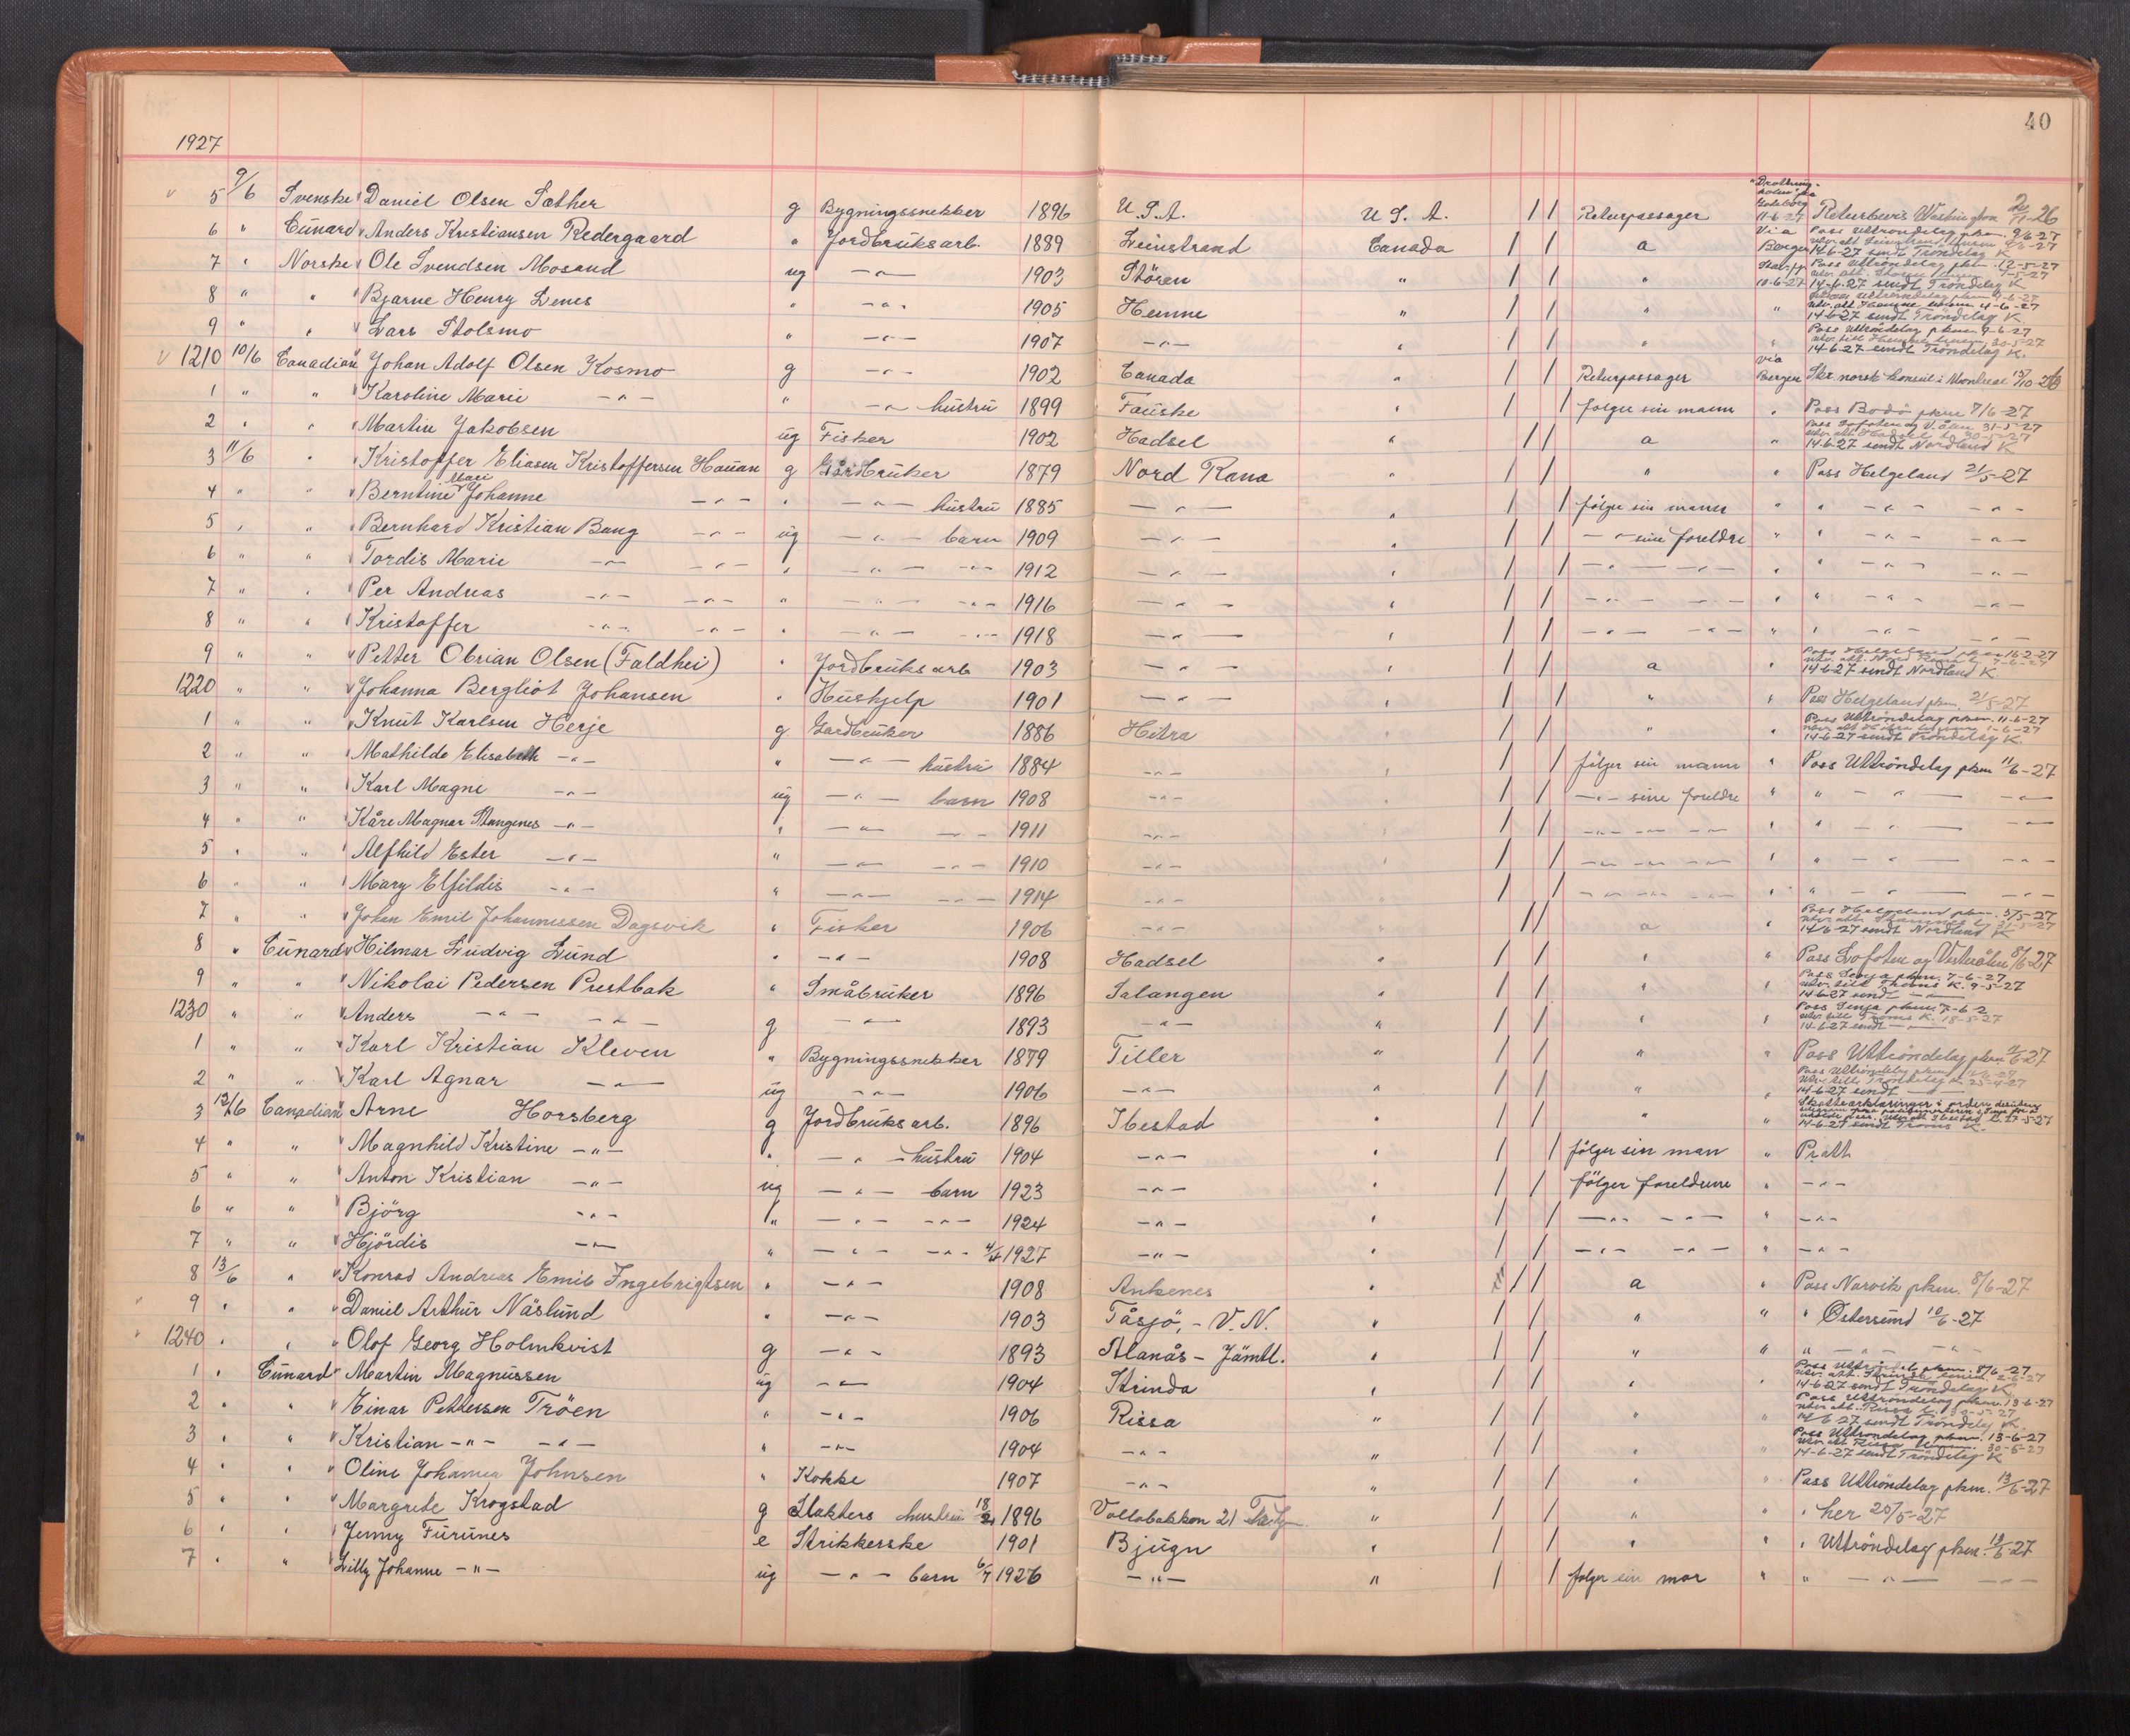 40
1927
5 9/6 Svenske Daniel Olsen Sæther g Bygningssnekker 1896 U.S.A. U.S.A. / / Returpassager "Drottningholm" fra Goteborg 11-6-27 Returbevis Washington 20/11-26
6 " Cunard Anders Kristiansen Redergaard " Jordbruksarb. 1889 Leinstrand Canada / / a Via Bergen Pass Uttröndelag pkm. 9/6-27 14-6-27 sendt Tröndelag K
7 " Norske Ole Svendsen Mosand ug -"- 1903 Stören " / / " 10-6-27 Pass Uttröndelag pkm. 12-5-27 14-6-27 sendt Tröndelag K
8 " " Bjarne Henry Lenes " -"- 1905 Hemne " / / " " 14-6-27 sendt Tröndelag K
9 " " Lars Stolsmo " -"- 1907 -"- " / / " " Pass Uttröndelag pkm 9-6-27 14-6-27 sendt Tröndelag K.
1210 10/6 Canadian Johan Adolf Olsen Kosmo g -"- 1902 Canada " / / Returpassager via Bergen Skr. norsk konsul i Montreal 13/10-26
1 " " Karoline Marie -"- " -"- hustru 1899 Fauske " / / følger sin mann " Pass Bodö pkm 7/6-27
2 " " Martin Jakobsen ug Fisker 1902 Hadsel " / / a " Pass Lofoten og V.ålen 31-5-27 14-6-27 sendt Nordland K
3 11/6 " Kristoffer Eliasen Kristoffersen Hauan g Gårdbruker 1879 Nord Rana " / / " " Pass Helgeland 21/5-27
4 " " Berntine Mari Johanne -"- " -"- hustru 1885 -"- " / / følger sin mann " " -"- -"-
5 " " Bernhard Kristian Bang -"- ug -"- barn 1909 -"- " / / -"- sine foreldre " " -"- -"-
6 " " Tordis Marie -"- -"- " -"- -"- 1912 -"- " / / -"- -"- " " -"- -"-
7 " " Per Andreas -"- -"- " -"- -"- 1916 -"- " / / -"- -"- " " -"- -"-
8 " " Kristoffer -"- -"- " -"- -"- 1918 -"- " / / -"- -"- " " -"- -"-
9 " " Petter Obrian Olsen (Faldhei) " Jordbruksarb 1903 -"- " / / a " Pass Helgeland pkm 16-2-27 14-6-27 sendt Nordland K
1220 " " Johanna Bergliot Johansen " Hushjelp 1901 -"- " / / " " Pass Helgeland pkm. 21/5-27
1 " " Knut Karlsen Herje g Gardbruker 1886 Hitra " / / " " Pass Uttröndelag pkm. 11-6-27 14-6-27 sendt Tröndelag K.
2 " " Mathilde Elisabeth -"- " -"- hustru 1884 -"- " / / følger sin mann " Pass Uttröndelag pkm 11/6-27
3 " " Karl Magne -"- ug -"- barn 1908 -"- " / / -"- sine foreldre " " -"- -"-
4 " " Kåre Magnar Stangenes -"- " -"- -"- 1911 -"- " / / -"- -"- -"- " " -"- -"-
5 " " Alfhild Ester -"- " -"- -"- 1910 -"- " / / -"- -"- -"- " " -"- -"-
6 " " Mary Elfildis -"- " -"- -"- 1914 -"- " / / -"- -"- -"- " " -"- -"-
7 " " Johan Emil Johannessen Dagsvik " Fisker 1906 -"- " / / a " Pass Helgeland pkm. 3/5-27 14/6-27 sendt Nordland K
8 " Cunard Hilmar Ludvig Lund " -"- 1908 Hadsel " / / " " Pass Lofoten og Vesterålen 8/6-27
9 " " Nikolai Pedersen Prestbak " Småbruker 1896 Salangen " / / " " Pass Senja pkm. 7-6-27 utv. till Troms K. 9-5-27 14-6-27 sendt -"-
1230 " " Anders -"- -"- g -"- 1893 -"- " / / " " Pass Senja pkm. 7-6-2 utv. till Troms K. 18-5-27 14-6-27 sendt -"-
1 " " Karl Kristian Kleven " Bygningssnekker 1879 Tiller " / / " " Pass Uttröndelag pkm 11/6-27
2 " " Karl Agnar -"- ug -"- 1906 -"- " / / " " 14-6-27 sendt -"-
3 12/6 Canadian Arne Horsberg g Jordbruksarb. 1896 Ibestad " / / " " 14-6-27 sendt Troms K.
4 " " Magnhild Kristine -"- " -"- hustru 1904 -"- " / / følger sin man " Pr ath
5 " " Anton Kristian -"- ug -"- barn 1923 -"- " / / følger foreldrene " -"-
6 " " Björg -"- " -"- -"- 1924 -"- " / / -"- -"- " -"-
7 " " Hjördis -"- " -"- -"- 4/4 1927 -"- " / / -"- -"- " -"-
8 13/6 " Konrad Andreas Emil Ingebrigtsen " -"- 1908 Ankenes " / / a " Pass Narvik pkm. 8/6-27
9 " " Daniel Arthur Näslund " -"- 1903 Tåsjö, - V.N. " / / " " " Östersund 10/6-27
1240 " " Olof Georg Holmkvist g -"- 1893 Alanäs - Jämtl. " / / " " " -"- -"-
1 " Cunard Martin Magnussen ug -"- 1904 Strinda " / / " " Pass Uttröndel. pkm. 8/6-27 14-6-27 sendt Tröndelag K
2 " " Einar Pettersen Tröen " -"- 1906 Rissa " / / " " Pass Uttröndelag pkm. 13-6-27 14-6-27 sendt Tröndelag K
3 " " Kristian -"- -"- " -"- 1904 -"- " / / " " Pass Uttröndelag pkm. 13-6-27 14-6-27 sendt Tröndelag K
4 " " Oline Johanna Johnsen " Kokke 1907 -"- " / / " " Pass Uttröndelag pkm. 13/6-27
5 " " Margrete Krogstad g Slakters hustru 18/2 1896 Vollabakken 21 " / / " " " her 25/5-27
6 " " Jenny Furunes e Strikkerske 1901 Bjugn " / / " " " Uttröndelag pkm. 13/6-27
7 " " Lilly Johanne -"- ug -"- barn 6/7 1926 -"- " / / følger sin mor " " -"- -"-